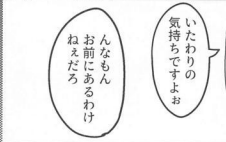 いたわりの
気持ちですよぉ
んなもん
お前にあるわけ
ねぇだろ